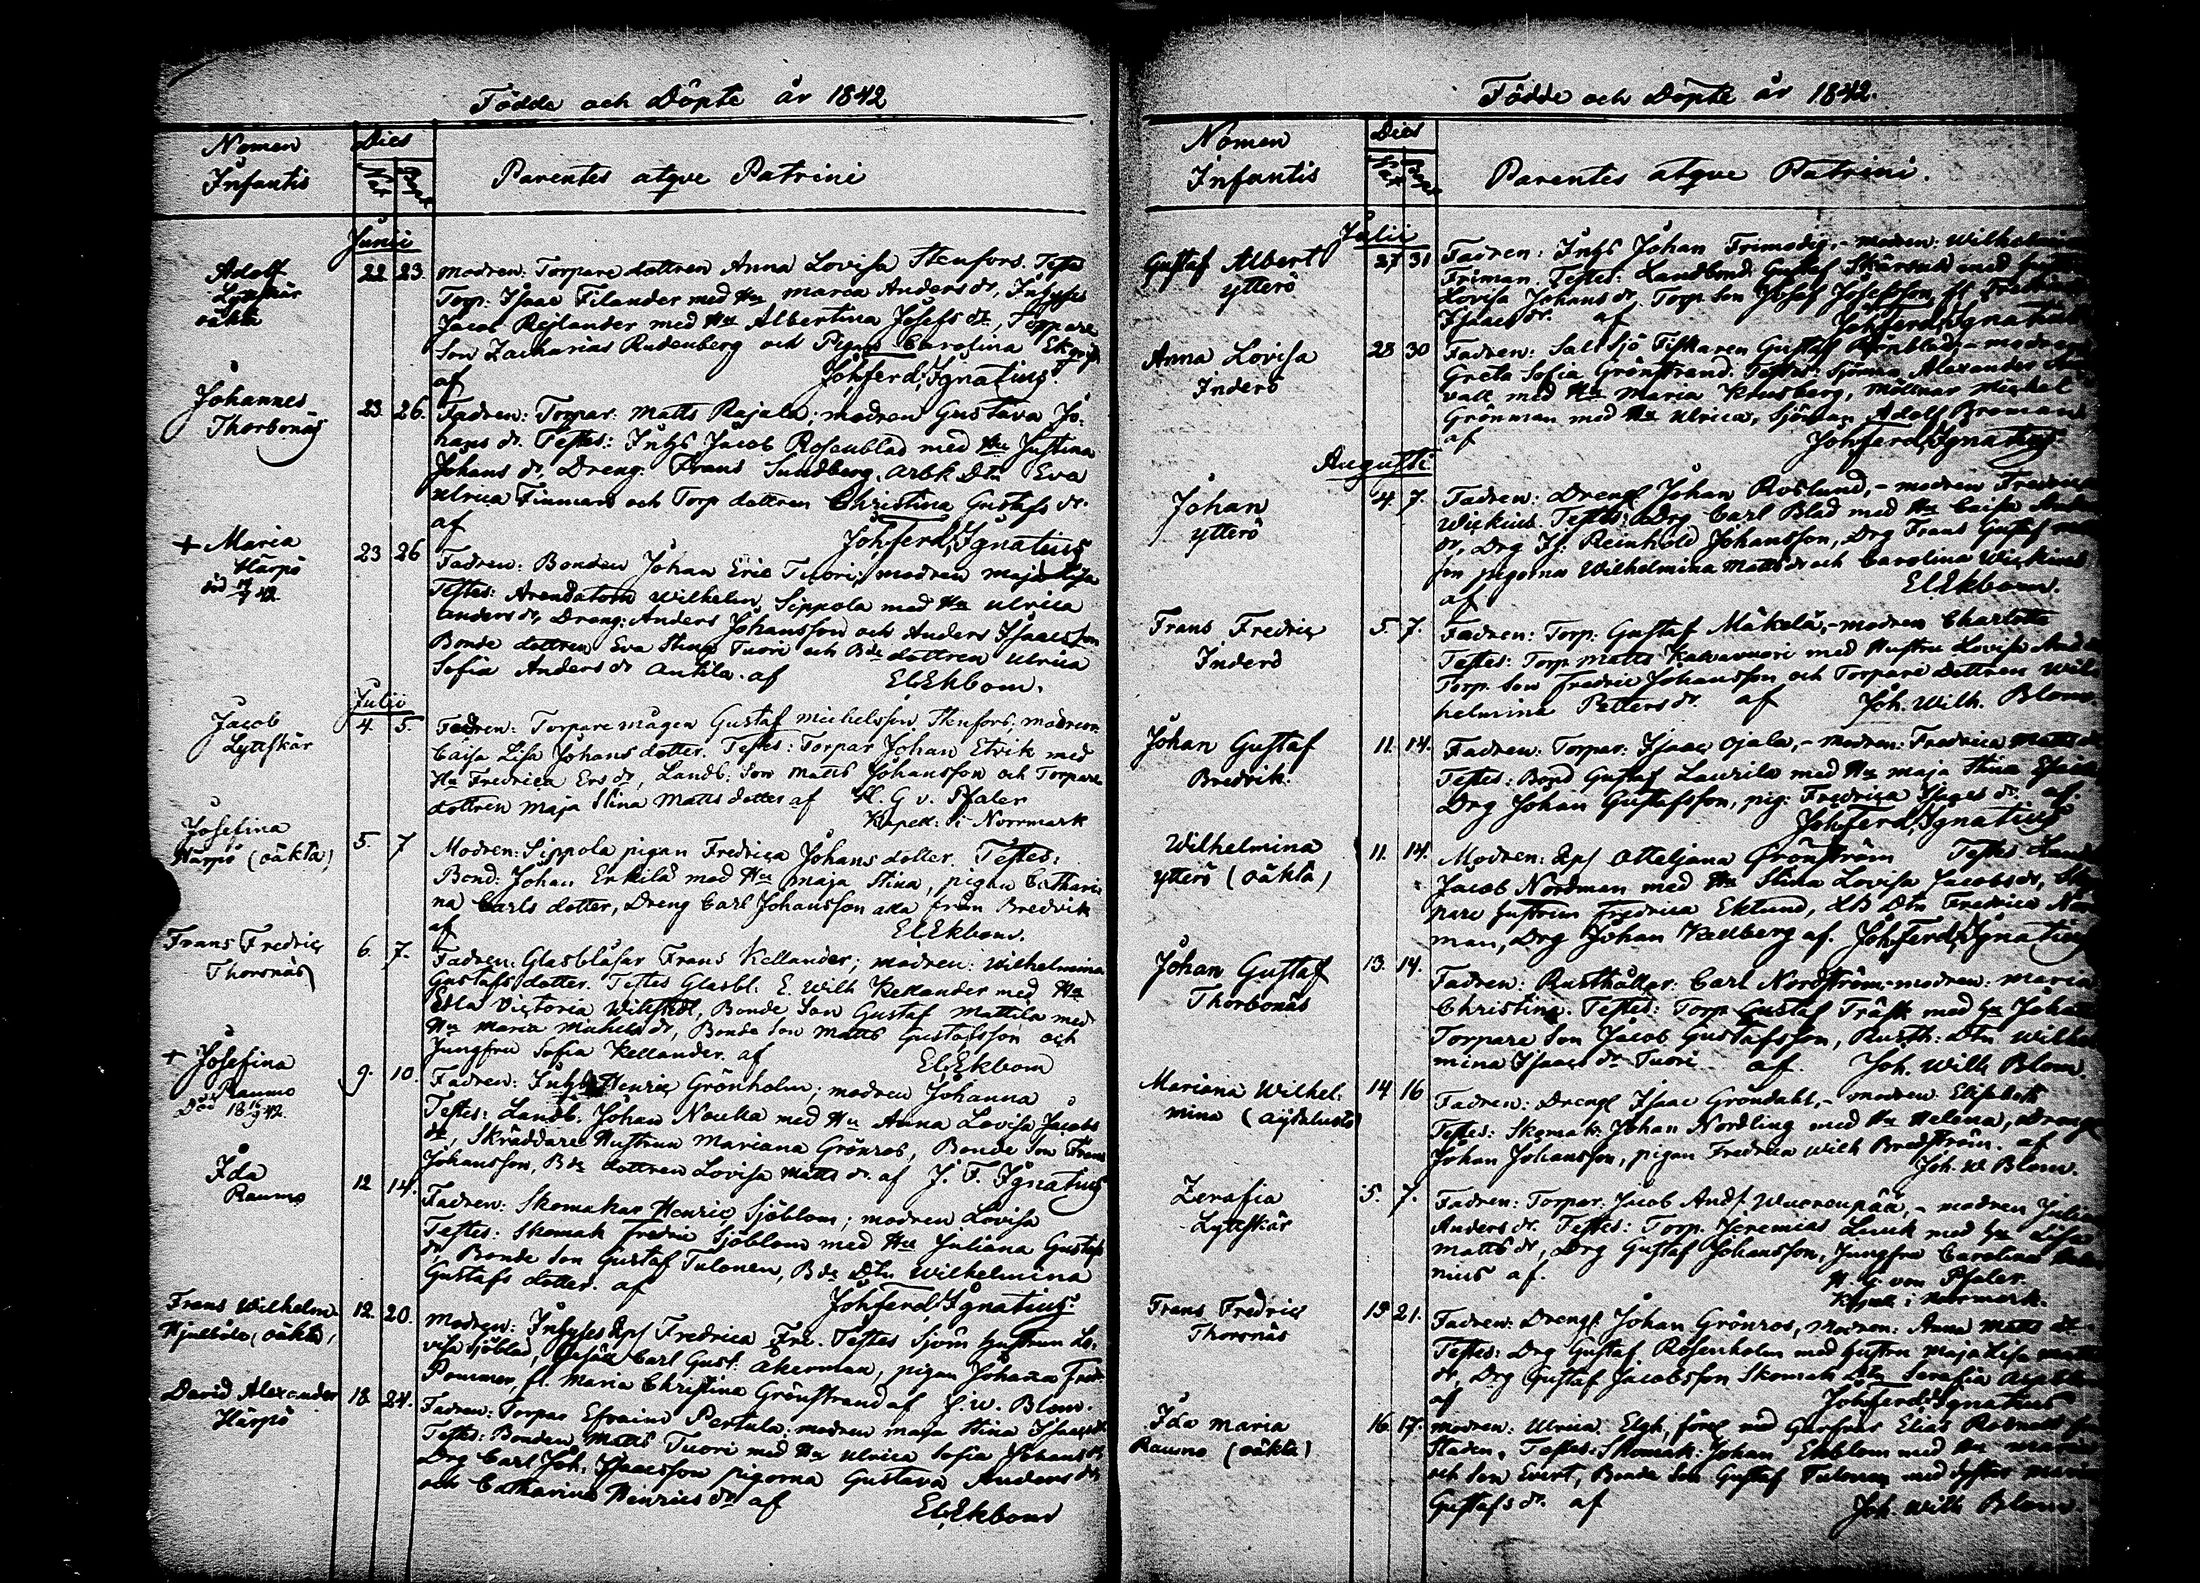 Födde och Döpte år 1842
Nomen Infantis
Dies
Parentes atqve Patrini
Junii
Adolf
Lyttskär
oäkta
22 23.
modren: Torpare dottren Anna Lovisa Stenfors. Testes
Torp: Isaac Filander med Hu Maria Anders dr, Inhyses
Jacob Rejlander med Hu Albertina Josefs dr, Torpare
Son Zacharias Rudenberg och Pigan Carolina
af Joh. Ferd. Ignatius.
Johannes
Thorbonäs
23. 26.
Fadren: Torpar: Matts Rajala; modren Gustava Jo-
hans dr. Testes: Inhs Jacob Rosenblad med Hu Justina
Johans dr, Dreng: Frans Sundberg, Arbk Dtn Eva
Ulrica Finnman och Torp dottren Christina Gustafs dr.
af Joh. Ferd. Ignatius
+ Maria
Härpö
23 26
Fadren: Bonden Johan Eric Tuori; modren Maja Lisa
Testes: Arendatorn Wilhelm Sippola med Hu Ulrica
Anders dr, Dreng: Anders Johansson och Anders Isaacsson
Bonde dottren Eva Stina Tuori och Bde dottren Ulrica
Sofia Anders dr Antila. af El. Ekbom.
Julii
Jacob
Lyttskär
4. 5.
Fadren: Torpare mågen Gustaf Michelsson Stenfors; modren
Caisa Lisa Johans dotter. Testes: Torpar Johan Etvik med
Hu Fredrica Ers dr, Landb: Son Matts Johansson och Torpare
dottren Maja Stina Matts dotter af H. G. v. Pfaler
Kapell: i Norrmark
Josefina
Härpö (oäkta)
5. 7
Modren: Sippola pigan Fredrica Johans dotter. Testes:
Bond: Johan Erkilä med Hu Maja Stina, pigan Cathari-
na Carls dotter, Dreng Carl Johansson alla från Bredvik
af El. Ekbom.
Frans Fredric
Thorsnäs
6. 7.
Fadren: Glasblåsar Frans Kellander; modren: Wilhelmina
Gustafs dotter. Testes Glasbl. E. Wilh Kellander med Hu
Edla Victoria, Bonde Son Gustaf Mattila med
Hu Maria Michels dr, Bonde Son Matts Gustafsson och
Jungfru Sofia Kellander. af El. Ekbom
+ Josefina
Raumo
9. 10.
Fadren: Inhs Henric Grönholm; modren Johanna
Testes: Landb. Johan Nauha med Hu Anna Lovisa Jacobs
dr, Skräddare Hustrun Mariana Grönros, Bonde Son Frans
Johansson, Bde dottren Lovisa Matts dr. af J. F. Ignatius
Ida
Raumo
12 14.
Fadren: Skomakar Henric Sjöblom; modren Lovisa
Testes: Skomak Fredric Sjöblom med Hu Juliana Gustafs
dr, Bonde Son Gustaf Tulonen, Bde Dtn Wilhelmina
Gustafs dotter. af Joh. Ferd. Ignatius.
Frans Wilhelm
Hjulböle (oäkta)
12. 20.
Modren: Inhyses Fredrica Testes Sjöm hustrun Lo-
visa Sjöblad, Carl Gust. Åkerman, pigan Johanna Fredr
Pommer, fl. Maria Christina Grönstrand af J. W. Blom.
David Alexander
Härpö
18. 24.
Fadren: Torpar Efraim Pertula; modren Maja Stina Isaacs dr
Testes: Bonden Matts Tuori med Hu Ulrica Sofia Johans dr,
Drg Carl Joh. Isaacsson pigorna Gustava Anders dr,
och Catharina Henrics dr af El. Ekbom
Födde och Döpte år 1842.
Nomen Infantis
Dies
Parentes atqve Patrini.
Julii
Gustaf Albert
Ytterö
27 31
Fadren: Inhs Johan Frimodig, - modren: Wilhelmina
Friman. Testes: Landbond. Gustaf med hustru
Lovisa Johans dr. Torp. Son Josef Josefsson
Isaacs dr. af Joh. Ferd. Ignatius
Anna Lovisa
Inderö
28 30
Fadren: Saltsjö Fiskaren Gustaf - modren
Greta Sofia Grönstrand. Testes: Sjöman Alexander
vall med Hu Maria Krusberg, Möllnar Michel
Grönman med Hu Ulrica, Sjöman Adolf Broman
af Joh. Ferd. Ignatius
Augusti
Johan
Ytterö
4 7.
Fadren: Drengl Johan Roslund, - modren Fredrica
Wickius. Testes: Drg Carl Blad med Hu Caisa
dr, Drg Is: Reinhold Johansson, Drg Frans
pigorna Wilhelmina Matts dr och Carolina Wickius
af El. Ekbom.
Frans Fredric
Inderö
5. 7.
Fadren: Torp. Gustaf Mäkelä, - modren Charlotta
Testes: Torp Matts med Hustru Lovisa
Torp. Son Fredric Johansson och Torpare Dottren Wil-
helmina Petters dr. af Joh. Wilh. Blom.
Johan Gustaf
Bredvik.
11. 14.
Fadren: Torpar: Isaac Ojala, - modren: Fredrica Matts dr
Testes: Bond Gustaf Laurila med Hu Maja Stina
Drg Johan Gustafsson, pig: Fredrica Isaacs dr. af
Joh. Ferd. Ignatius
Wilhelmina
Ytterö (oäkta)
11. 14.
Modren: Otteljana Grönström Testes: Landb
Jacob Nordman med Hu Stina Lovisa Jacobs dr,
pare hustrun Fredrica Eklund, LB Dtn Fredrica Nord-
man, Drg Johan Kellberg af. Joh. Ferd. Ignatius
Johan Gustaf
Thorbonäs
13. 14.
Fadren: Rusthållar: Carl Nordström, - modren: Maria
Christina. Testes: Torp Gustaf Träsk med Hu Johan
Torpare Son Jacob Gustafsson, Rusth: Dtn Wilhel-
mina Isaacs dr Tuori af. Joh. Wilh Blom.
Mariana Wilhel-
mina
14 16
Fadren: Drengl Isaac Gröndahl, - modren Elisabeth
Testes: Skomak: Johan Nordling med Hu Helena, Dreng
Johan Johansson, pigan Fredrica Wilh Bredström. af
Joh. W. Blom.
Zerafia
Lyttskär
5. 7.
Fadren: Torpar: Jacob Andf. Wuorenpää, - modren Julia
Anders dr. Testes: Torp. Jeremias med Hu Lisa
Matts dr, Drg Gustaf Johansson, Jungfru Carolina
nius af. H. G. von Pfaler.
Kapell: i Norrmark.
Frans Fredric
Thorsnäs
19 21.
Fadren: Drengl Johan Grönros, modren: Anna Matts dr
Testes: Drg Gustaf Rosenholm med hustru Maja Lisa
dr, Drg Gustaf Jacobsson Skomak Dtn Serafia
af Joh. Ferd. Ignatius
Ida Maria
Raumo (oäkta)
16 17.
Modren: Ulrica Elgh, Elias
Staden. Testes: Skomak: Johan Ekblom med Hu Maria
och Son Evert, Bonde Son Gustaf Tulonen med Syster Maria
Gustafs dr. af Joh. Wilh Blom